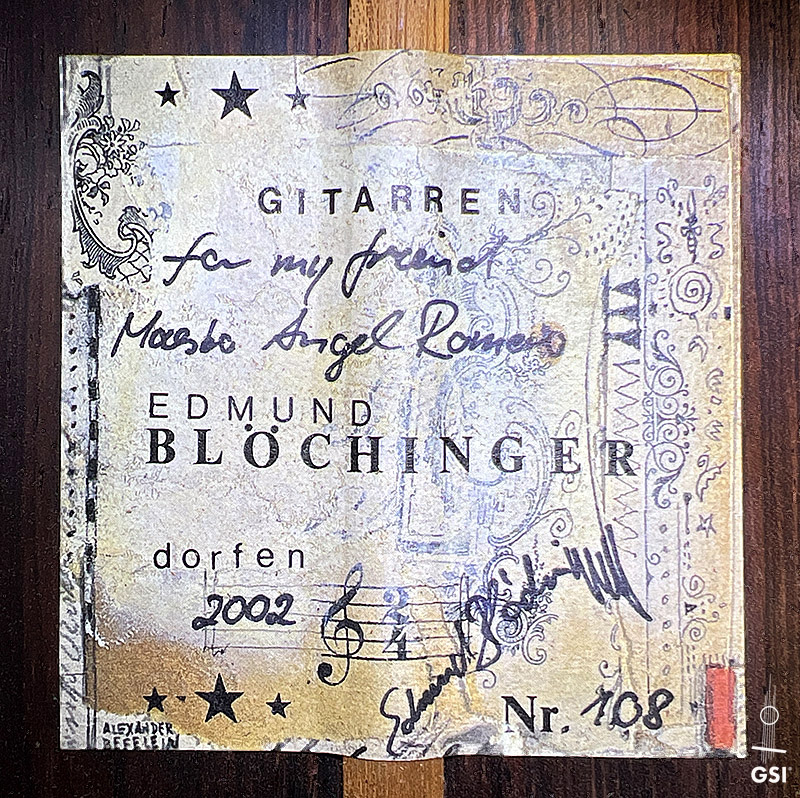 GITARREN
for my friend
Maestro Angel Romero
EDMUND
BLÖCHINGER
dorfen
2002
2
4
Edmund Blöchinger
Nr. 108
ALEXANDER
GSI